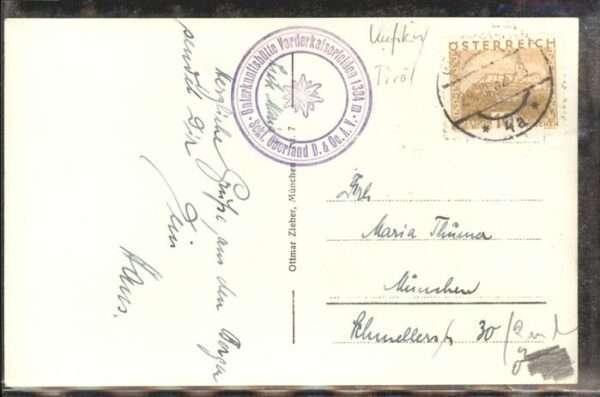 Herzliche Grüße aus den Bergen
sendet Dir
Dein
Hans.
Unterkunftshütte Vorderkaiserfelden 1384 m
Sekt. Oberland D. & Oe. A. V.
Ottmar Zieher, München
Tirol
ÖSTERREICH
Frl.
Maria Thürner
München
Schmellerstr 30/